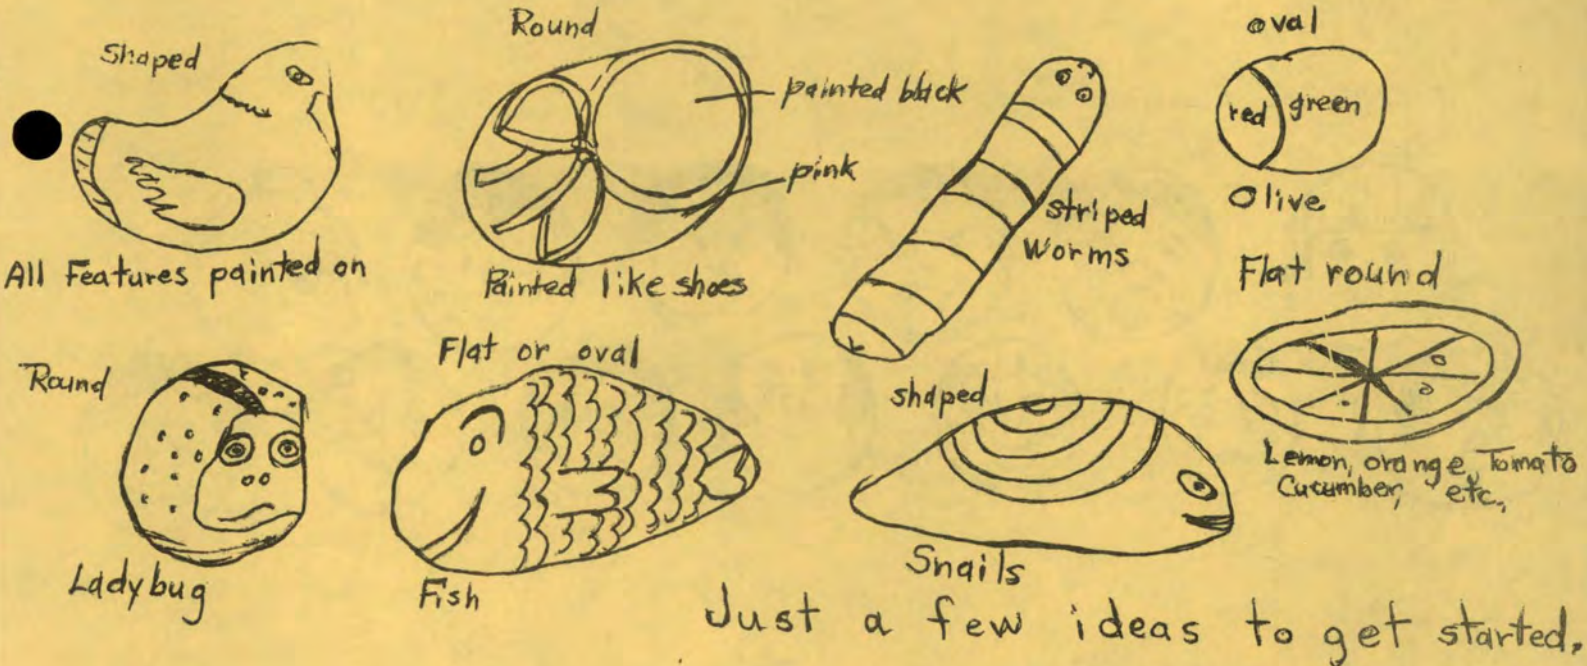 Shaped
All Features painted on
Round
painted black
pink
Painted like shoes
striped
Worms
oval
red
green
Olive
Flat round
Lemon, orange, Tomato
Cucumber, etc.,
Round
Ladybug
Flat or oval
Fish
shaped
Snails
Just a few ideas to get started.